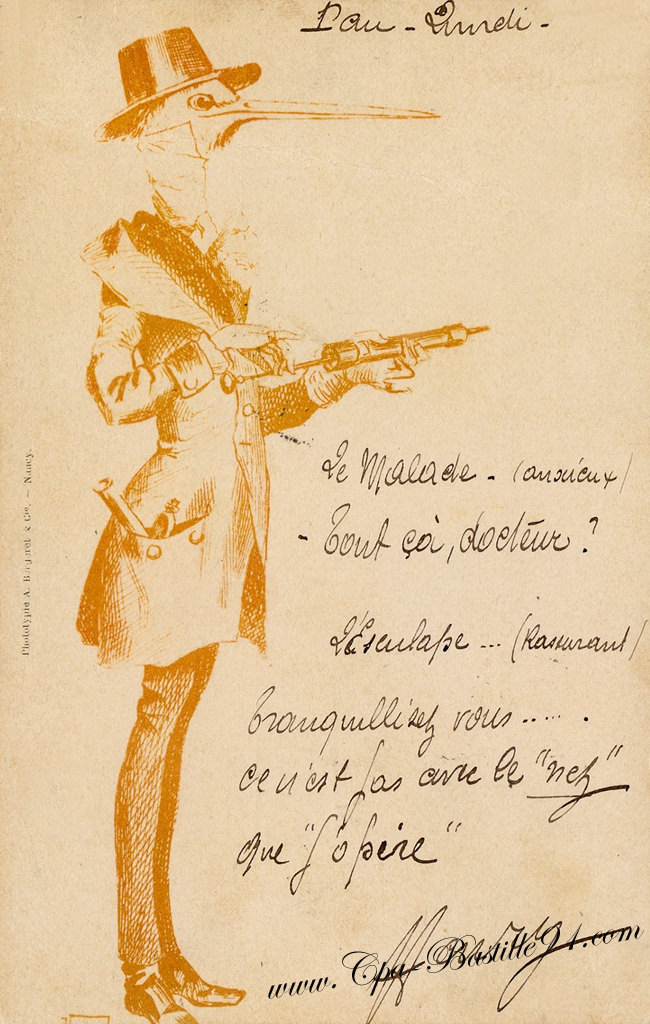 Pau - Lundi -
Phototypie A. Bergeret & Cie. — Nancy.
Le Malade - (anxieux)
- Tout çà, docteur ?
L'Esculape ... (Rassurant)
Tranquillisez vous ..... .
ce n'est pas avec le "nez"
que "j'opère"
www.Cpa-Bastille91.com